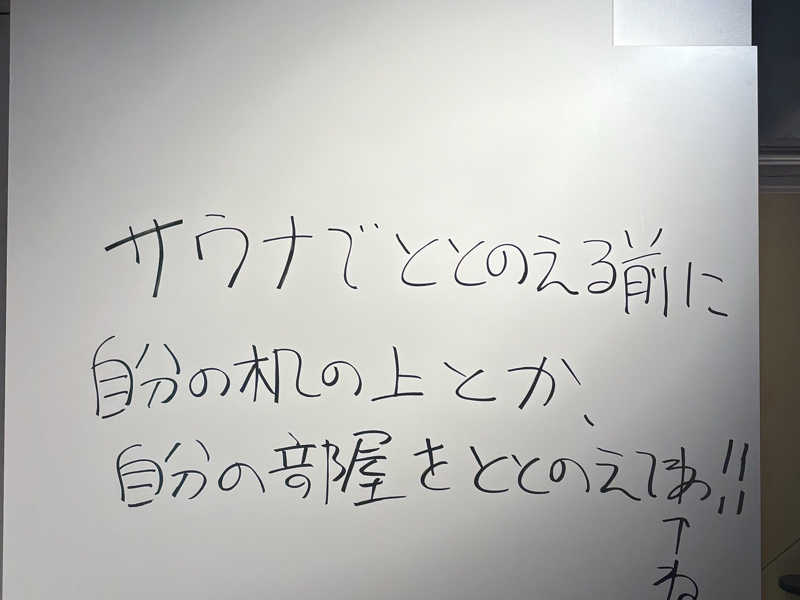 サウナでととのえる前に
自分の机の上とか、
自分の部屋をととのえてね!!
↑
ね